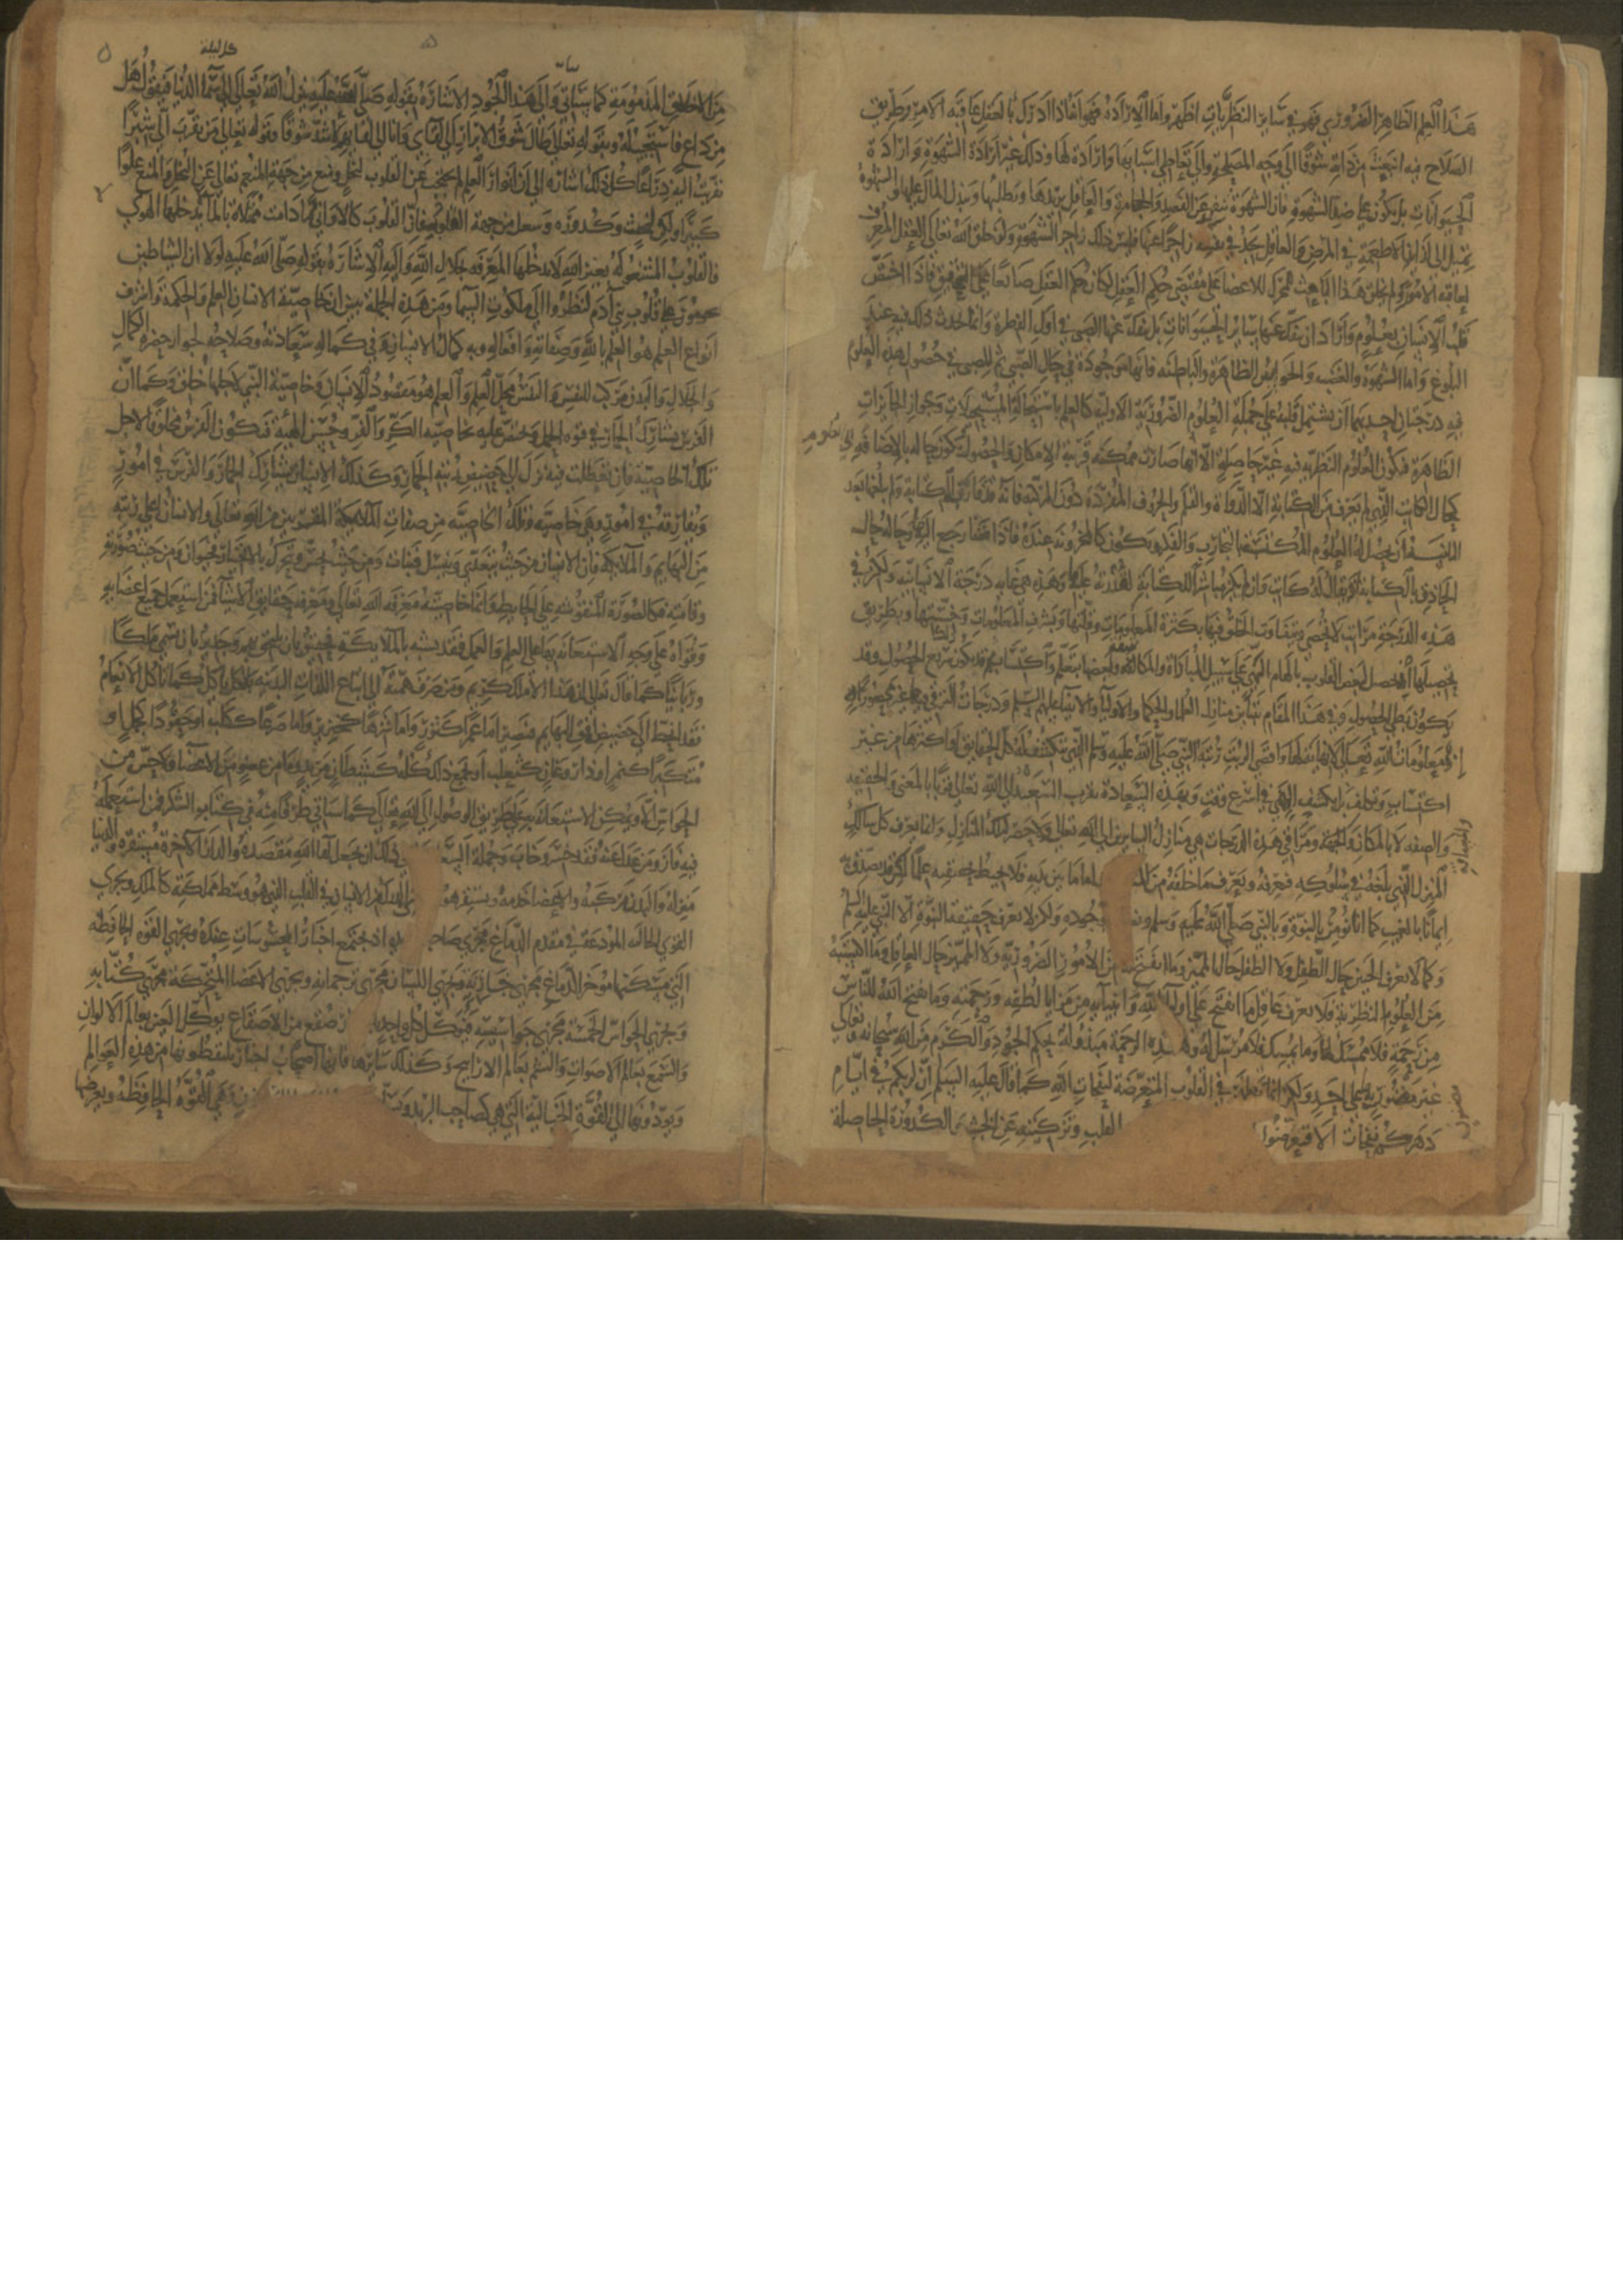 هذا العلم الظاهر الضروري فهو في سائر النظريات اظهر واما الارادة فهو انه اذا ادرك بالعقل عاقبة الامر وطريق
الصلاح فيه انبعث من ذاته شوقا الى وجه المصلحة والى تعاطي اسبابها وارادة لها وذلك غير ارادة الشهوة وارادة
الحيوانات بل يكون على ضد الشهوة فان الشهوة تنفر عن الفصد والحجامة والعاقل يريدها ويطلبها ويبذل المال عليها والشهوة
تميل الى لذائذ الاطعمة في المرض والعاقل يجد في نفسه زاجرا عنها وليس ذلك زاجر الشهوة ولو خلق الله تعالى العقل المعرف
لعاقبة الامور ولم يخلق هذا الباعث المحرك للاعضاء على مقتضى حكم العقل لكان حكم العقل ضائعا على التحقيق فاذا اختص
قلب الانسان بعلوم وارادة انفك عنها سائر الحيوانات بل ينفك عنها الصبي في اول الفطرة وانما يحدث ذلك فيه عند
البلوغ واما الشهوة والغضب والحواس الظاهرة والباطنة فانها موجودة في حال الصبى ثم للصبي في حصول هذه العلوم
فيه درجتان احديهما ان يشتمل قلبه على جملة العلوم الضرورية الاولية كالعلم باستحالة المستحيلات وجواز الجايزات
الظاهرة فتكون العلوم النظرية فيه غير حاصلة الا انها صارت ممكنة قريبة الامكان والحصول فتكون حاله بالاضافة الى العلوم
كحال الكاتب الذي لم يعرف من الكتابة الا الدواة والقلم والحروف المفردة دون المركبة فانه قد قارب الكتابة ولم يبلغها بعد
الثانية ان يحصل له العلوم المكتسبة بالتجارب والفكر فيكون كالمخزونة عنده فاذا شا رجع اليها وحاله حال
الحاذق بالكتابة اذ يقال له كاتب وان لم يكن مباشرا للكتابة لقدرته عليها وهذه هي غاية درجة الانسانية ولكن في
هذه الدرجة مراتب لا تحصى يتفاوت الخلق فيها بكثرة المعلومات وقلتها وبشرف المعلومات وخستها وبطريق
تحصيلها اذ يحصل لبعض القلوب بالهام الهي على سبيل المباداة والمكاشفة ولبعضها بتعلم واكتساب ثم قد يكون سريع الحصول وقد
يكون بطي الحصول وفي هذا المقام تتباين منازل العلما والحكما والاوليا والانبيا عليهم السلم ودرجات الترقي فيها غير محصورة
اذ معلومات الله تعالى لا نهاية لها واقصى الرتب رتبة النبي صلى الله عليه وسلم الذي تنكشف له كل الحقايق او اكثرها من غير
اكتساب وتكلف بل بكشف الهي في اسرع وقت وبهذه السعادة يقرب السعيد الى الله تعالى قربا بالمعنى والحقيقة
والصفة لا بالمكان والجهة ومراقي هذه الدرجات هي منازل السايرين الى الله تعالى ولا حصر لتلك المنازل وانما يعرف كل سالك
المنزل الذي بلغه في سلوكه فيعرفه ويعرف ما خلفه من المنازل فاما ما بين يديه فلا يحيط بحقيقته علما لكن قد يصدق به
ايمانا بالغيب كما انا نؤمن بالنبوة وبالنبي صلى الله عليه وسلم ونصدق بوجوده ولكن لا يعرف حقيقة النبوة الا النبي عليه السلم
وكما لا يعرف الجنين حال الطفل ولا الطفل حال المميز وما انفتح له من الامور الضرورية ولا المميز حال العاقل وما اكتسبه
من العلوم النظرية فلا يعرف عاقل ما افتتح على اوليا الله وانبيايه من مزايا لطفه ورحمته وما يفتح الله للناس
من رحمة فلا ممسك لها وما يمسك فلا مرسل له وهذه الرحمة مبذولة بحكم الجود والكرم من الله سبحانه وتعالى
غير مضنون بها على احد ولكن انما تظهر في القلوب المتعرضة لنفحات الله كما قال عليه السلم ان لربكم في ايام
دهركم نفحات الا فتعرضوا القلب وتزكيته عن الخبث والكدورة الحاصلة
من الاخلاق المذمومة كما سيأتي والى هذا الجود الاشارة بقوله صلى الله عليه ينزل الله تعالى الى سماء الدنيا فيقول هل
كل ليلة
من داع فاستجيب له وبقوله تعالى طال شوق الابرار الى لقائي وانا الى لقايهم اشد شوقا وقوله تعالى من تقرب الي شبرا
تقربت اليه ذراعا كل ذلك اشارة الى ان انوار العلم لم تحتجب عن القلوب لبخل ومنع من جهة المنعم تعالى عن البخل والمنع علوا
كبيرا ولكن لخبث وكدورة وشغل من جهة القلوب فان القلوب كالاواني فما دامت ممتلئة بالماء لا يدخلها الهواء
فالقلوب المشغولة بغير الله لا يدخلها المعرفة بجلال الله واليه الاشارة بقوله صلى الله عليه لولا ان الشياطين
يحومون على قلوب بني آدم لنظروا الى ملكوت السماء ومن هذه الجملة يبين ان خاصية الانسان العلم والحكمة واشرف
انواع العلم هو العلم بالله وصفاته وافعاله وبه كمال الانسان وفي كماله سعادته وصلاحه لجوار حضرة الكمال
والجلال والبدن مركب للنفس والنفس محل العلم والعلم هو مقصود الانسان وخاصيته التي لاجلها خلق وكما ان
الفرس يشارك الحمار في قوة الحمل ويختص عليه بخاصية الكر والفر وحسن الهيئة فتكون الفرس مخلوقا لاجل
تلك الخاصية فان تعطلت فيه نزل الى حضيض رتبة الحمار وكذلك الانسان يشارك الحمار والفرس في امور
ويفارقه في امور وهي خاصيته وتلك الخاصية من صفات الملائكة المقربين من الله تعالى والانسان على رتبة
من البهايم والملائكة فان الانسان من حيث يتغذى وينسل فنبات ومن حيث يحس ويتحرك بالاختيار فحيوان ومن حيث صورته
وقامته فكالصورة المنقوشة على الحايط وانما خاصيته معرفة الله تعالى ومعرفة حقايق الاشيا فمن استعمل جميع اعضايه
وقواه على وجه الاستعانة بها على العلم والعمل فقد تشبه بالملايكة فحقيق بان يلحق بهم وجدير بان يسمى ملكا
وربانيا كما قال تعالى ان هذا الا ملك كريم ومن صرف همته الى اتباع اللذات البدنية ياكل كما تاكل الانعام
فقد انحط الى حضيض افق البهايم فتصير اما غمرا كثور واما شرها كخنزير واما ضرعا ككلب او حقودا كجمل او
متكبرا كنمر او ذا روغان كثعلب او يجمع ذلك كله كشيطان مريد وما من عضو من الاعضا ولا حس من
الحواس الا ويمكن الاستعانة به على طريق الوصول الى الله تعالى كما سياتي طرف منه في كتاب الشكر فمن استعمله
فيه فاز ومن عدل عنه فقد خسر وخاب وجملة السعادة في ذلك ان يجعل لقا الله مقصده والدار الآخرة مستقره والدنيا
منزله والبدن مركبه والاعضا خدمه ويستقر هو المدرك من الانسان في القلب الذي هو وسط مملكته كالملك ويجري
القوى الخيالية المودعة في مقدم الدماغ مجرى صاحب بريده اذ تجتمع اخبار المحسوسات عنده ويجري القوة الحافظة
التي مسكنها موخر الدماغ مجرى خازنه ويجري اللسان مجرى ترجمانه ويجري الاعضا المتحركة مجرى كتابه
ويجري الحواس الخمسة مجرى جواسيسه فيوكل كل واحد صقع من الاصقاع يوكل العين بعالم الالوان
والسمع بعالم الاصوات والشم بعالم الارايح وكذلك سايرها فانها اصحاب اخبار يلتقطونها من هذه العوالم
ويودونها الى القوة الخيالية التي هي كصاحب البريد وهي القوة الحافظة ويعرضها